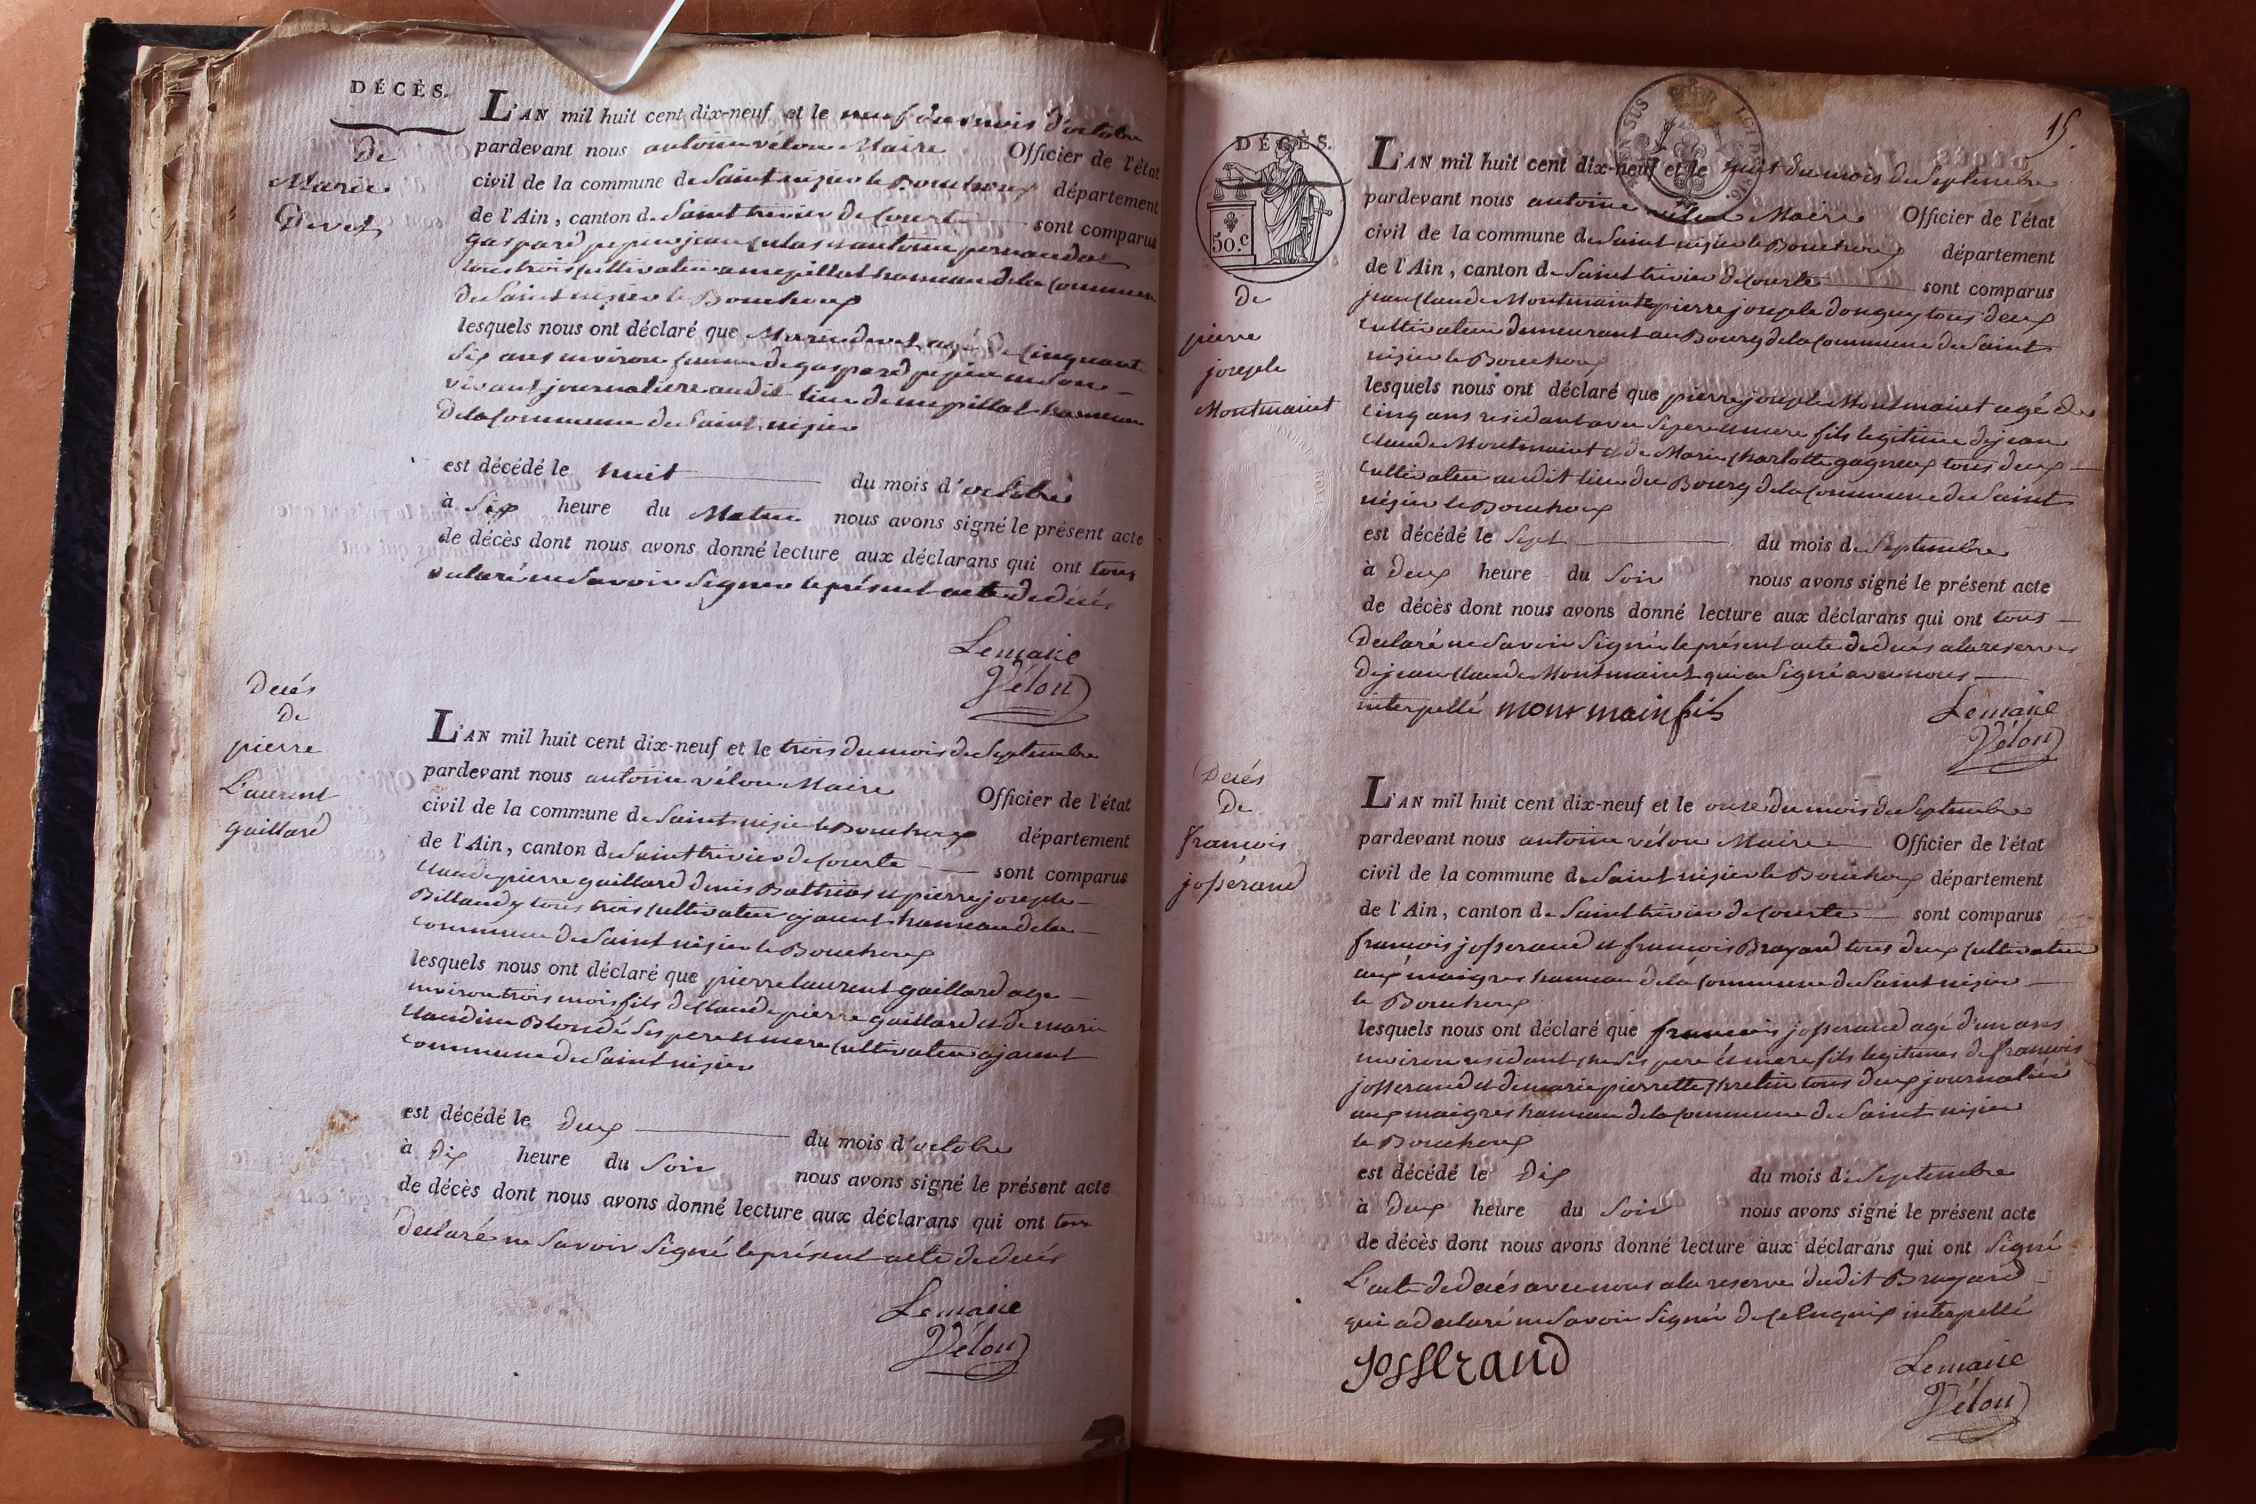 DÉCÈS.
de
Marie
Devet
L'AN mil huit cent dix-neuf et le neuf du mois d'octobre
pardevant nous antoine vélon Maire Officier de l'état
civil de la commune de Saint nizier le Bouchoux département
de l'Ain, canton de Saint trivier de Courte sont comparus
gaspard pepin jean antoine
tous trois cultivateur a mepillat hameau de la commune
de Saint nizier le Bouchoux
lesquels nous ont déclaré que Marie devet agé de Cinquante
Six ans environ femme de gaspard pepin en Son
vivant journaliere audit lieu de mepillat hameau
de la commune de Saint nizier
est décédé le huit du mois d'octobre
à Six heure du Matin nous avons signé le présent acte
de décès dont nous avons donné lecture aux déclarans qui ont tous
declaré ne Savoir Signer le présent acte de decés
Le maire
Vélon
Decés
de
pierre
Laurent
gaillard
L'AN mil huit cent dix-neuf et le trois du mois de Septembre
pardevant nous antoine vélon Maire Officier de l'état
civil de la commune de Saint nizier le Bouchoux département
de l'Ain, canton de Saint trivier de Courte sont comparus
Claude pierre gaillard denis Bathias et pierre joseph
Billaudy tous trois cultivateur ajaunt hameau de la
commune de Saint nizier le Bouchoux
lesquels nous ont déclaré que pierre laurent gaillard age
environ trois mois fils de Claude pierre gaillard et de marie
Claudine Blondé Ses pere et mere Cultivateur ajaunt
commune de Saint nizier
est décédé le Deux du mois d'octobre
à Dix heure du Soir nous avons signé le présent acte
de décès dont nous avons donné lecture aux déclarans qui ont tous
declaré ne Savoir Signé le présent acte de decés
Le maire
Vélon
15
DÉCÈS.
50.c
de
pierre
joseple
Montmaint
L'AN mil huit cent dix-neuf et le huit du mois de Septembre
pardevant nous antoine vélon Maire Officier de l'état
civil de la commune de Saint nizier le Bouchoux département
de l'Ain, canton de Saint trivier de Courte sont comparus
jean Claude Montmaint pierre joseple donguy tous deux
cultivateur demeurant au Bourg de la Commune de Saint
nizier le Bouchoux
lesquels nous ont déclaré que pierre joseple Montmaint agé de
Cinq ans residant avec Se pere et mere fils legitime de jean
Claude Montmaint et de Marie Charlotte gagneux tous deux
cultivateur audit lieu du Bourg de la commune de Saint
nizier le Bouchoux
est décédé le Sept du mois de Septembre
à Deux heure du Soir nous avons signé le présent acte
de décès dont nous avons donné lecture aux déclarans qui ont tous
declaré ne Savoir Signé le présent acte de decés a la reserve
de jean Claude Montmaint qui a Signé avec nous
interpellé mont main fils
Le maire
Vélon
Decés
De
francois
josserand
L'AN mil huit cent dix-neuf et le onze du mois de Septembre
pardevant nous antoine vélon Maire Officier de l'état
civil de la commune de Saint nizier le Bouchoux département
de l'Ain, canton de Saint trivier de Courte sont comparus
francois josserand et francois Brayard tous deux Cultivateur
aux maigres hameau de la Commune de Saint nizier
le Bouchoux
lesquels nous ont déclaré que francois josserand agé d'un ans
environ residant che Ses pere et mere fils legitimes de francois
josserand et de marie pierrette tous deux journalier
aux maigres hameau de la commune de Saint nizier
le Bouchoux
est décédé le Dix du mois de Septembre
à Deux heure du Soir nous avons signé le présent acte
de décès dont nous avons donné lecture aux déclarans qui ont Signé
L'acte de decés avec nous a la reserve dudit Brayard
qui a declaré ne Savoir Signé de Ce Enquis interpellé
josserand
Le maire
Vélon